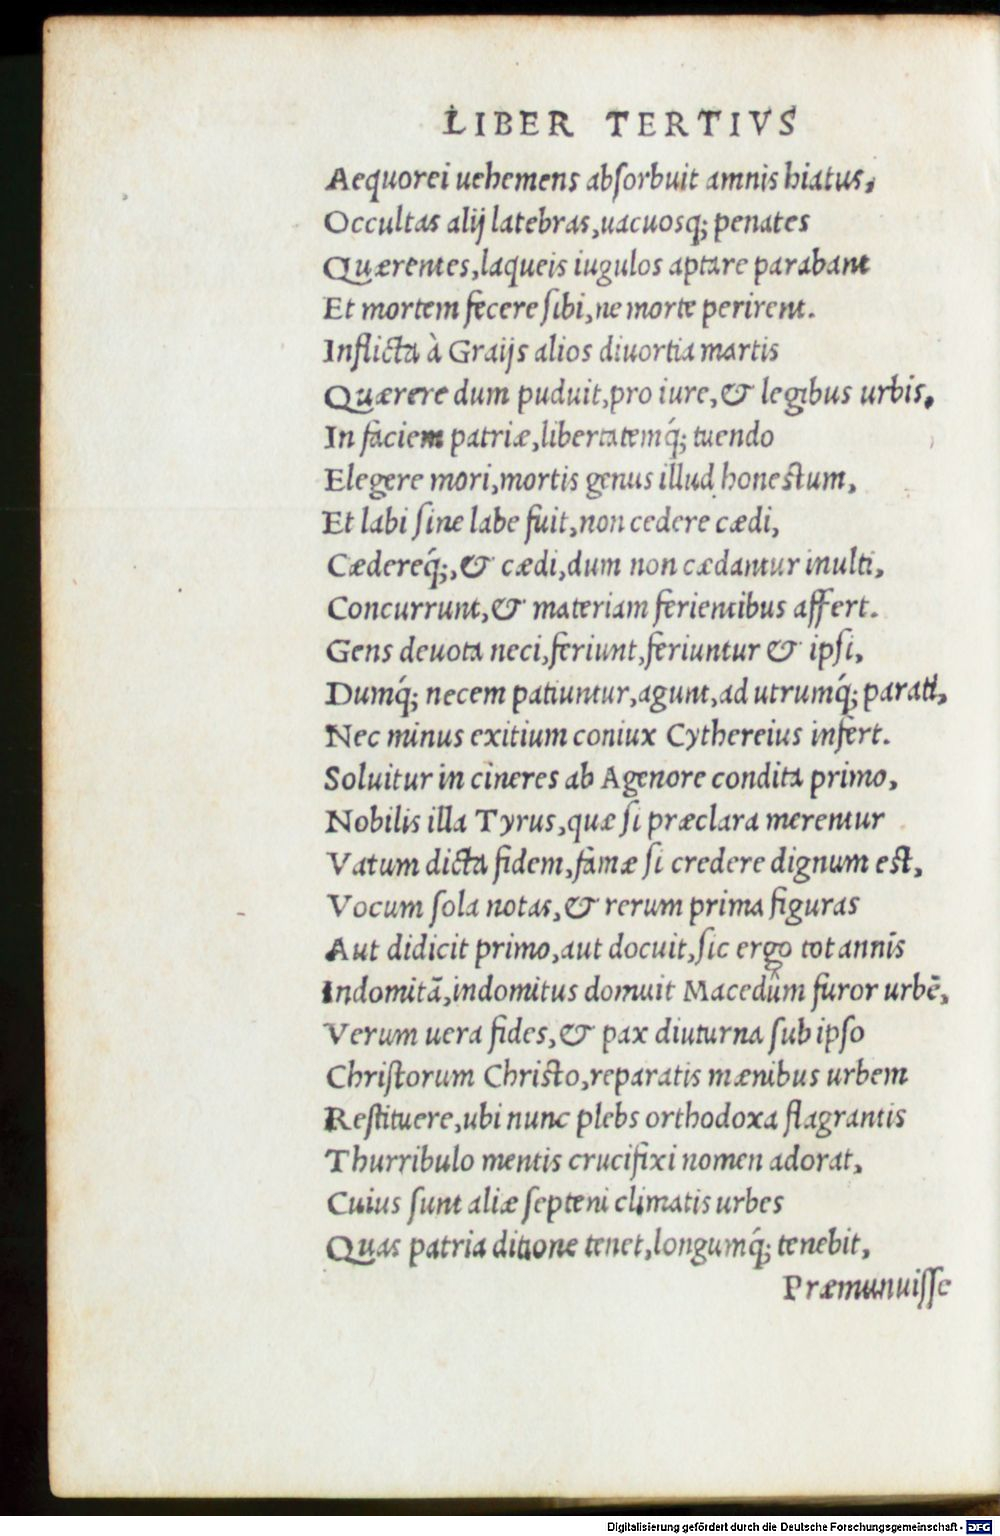 LIBER TERTIVS
Aequorei uehemens abſorbuit amnis hiatus,
Occultas alij latebras, uacuosq; penates
Quærentes, laqueis iugulos aptare parabant
Et mortem fecere ſibi, ne morte perirent.
Inflicta à Graijs alios diuortia martis
Quærere dum puduit, pro iure, & legibus urbis,
In faciem patriæ, libertatemq́; tuendo
Elegere mori, mortis genus illud honestum,
Et labi ſine labe fuit, non cedere cædi,
Cædereq́;, & cædi, dum non cædantur inulti,
Concurrunt, & materiam ferientibus affert.
Gens deuota neci, feriunt, feriuntur & ipſi,
Dumq́; necem patiuntur, agunt, ad utrumq́; parati,
Nec minus exitium coniux Cythereius infert.
Soluitur in cineres ab Agenore condita primo,
Nobilis illa Tyrus, quæ ſi præclara merentur
Vatum dicta fidem, famæ ſi credere dignum est,
Vocum ſola notas, & rerum prima figuras
Aut didicit primo, aut docuit, ſic ergo tot annis
Indomitā, indomitus domuit Macedûm furor urbē,
Verum uera fides, & pax diuturna ſub ipſo
Chriſtorum Christo, reparatis mænibus urbem
Reſtituere, ubi nunc plebs orthodoxa flagrantis
Thurribulo mentis crucifixi nomen adorat,
Cuius ſunt aliæ ſepteni climatis urbes
Quas patria ditione tenet, longumq́; tenebit,
Præmunuiſſe
Digitalisierung gefördert durch die Deutsche Forschungsgemeinschaft - DFG